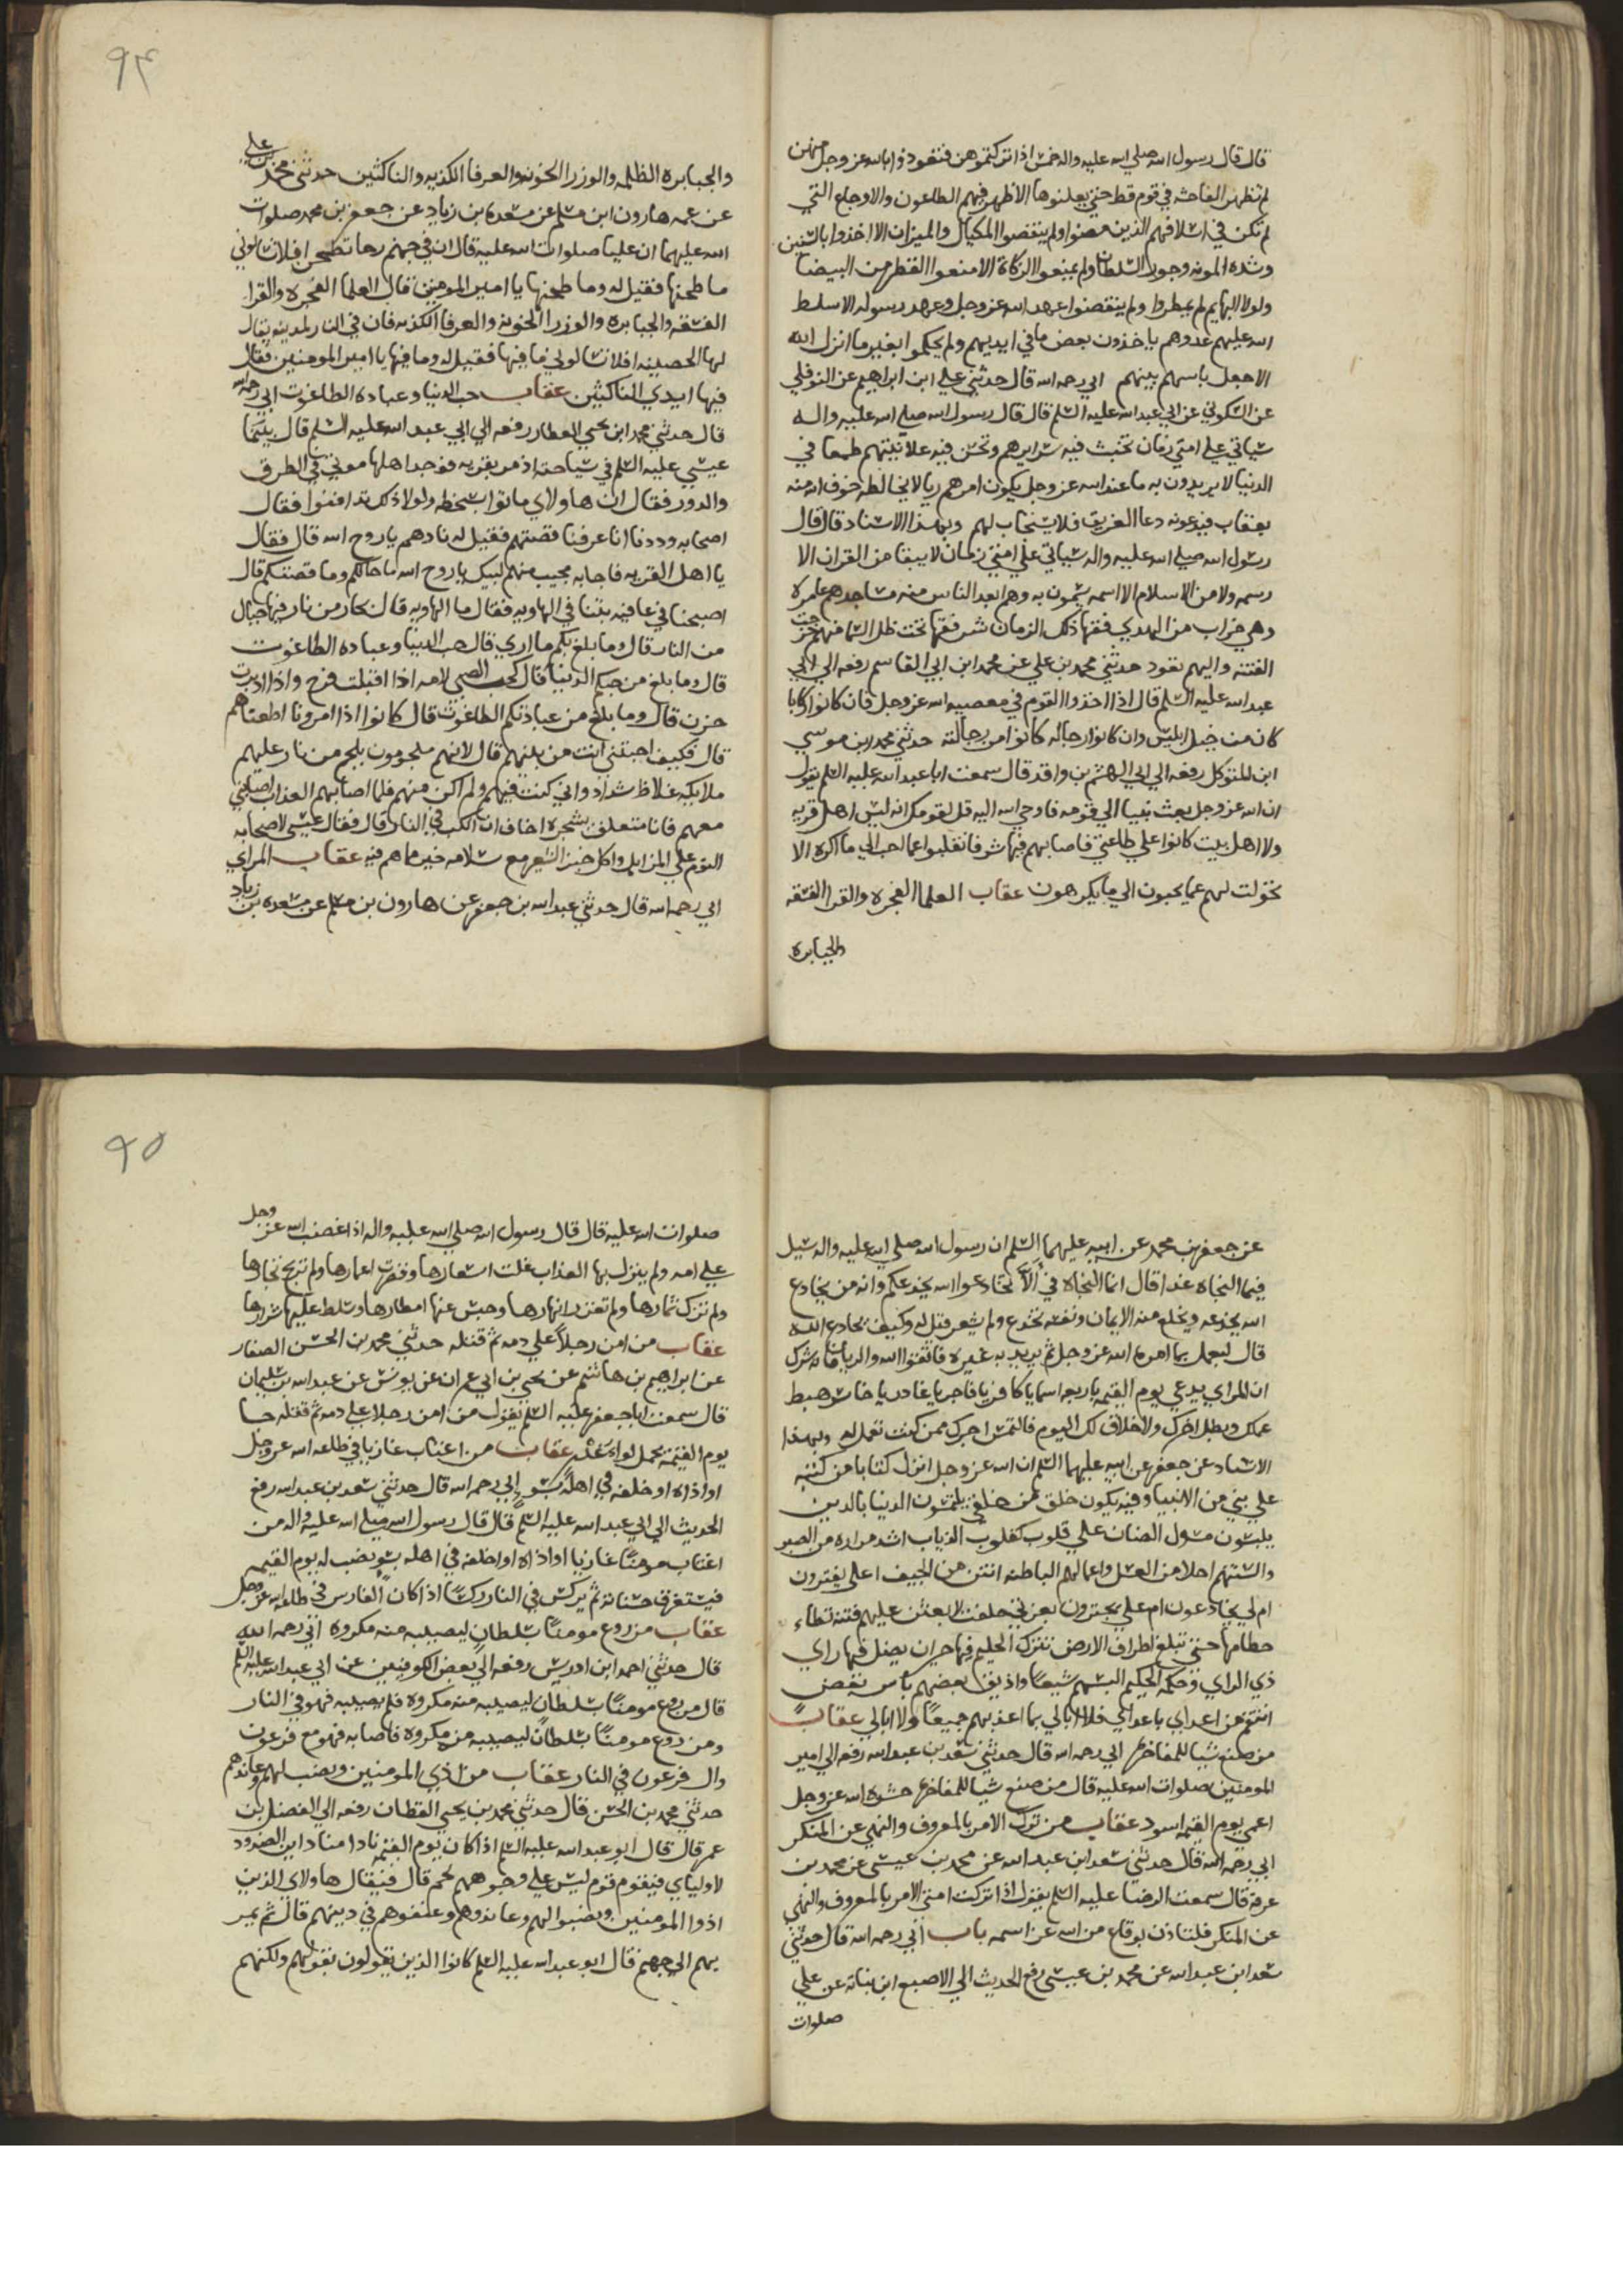 قال قال رسول الله صلي الله عليه واله خمس اذا تركتموهن فتعوذوا بالله عز وجل منهن
لم تظهر الفاحشه في قوم قط حتي يعلنوها الا ظهر فيهم الطاعون والاوجاع التي
لم تكن في اسلافهم الذين مضوا ولم ينقصوا المكيال والميزان الا اخذوا بالسنين
وشده المونه وجور السلطان ولم يمنعوا الزكاة الا منعوا القطر من السما
ولولا البهايم لم يمطروا ولم ينقضوا عهد الله عز وجل وعهد رسوله الا سلط
الله عليهم عدوهم ياخذون بعض ما في ايديهم ولم يحكموا بغير ما انزل الله
الا جعل باسهم بينهم ابي رحمه الله قال حدثني علي ابن ابراهيم عن النوفلي
عن السكوني عن ابي عبد الله عليه السلم قال قال رسول الله صلي الله عليه واله
سياتي علي امتي زمان تخبث فيه سرايرهم وتحسن فيه علانيتهم طمعا في
الدنيا لا يريدون به ما عند الله عز وجل يكون امرهم ريا لا يخالطه خوف الله منه
بعقاب فيدعونه دعا الغريق فلا يستجاب لهم وبهذا الاسناد قال قال
رسول الله صلي الله عليه واله سياتي علي امتي زمان لا يبقا من القران الا
رسمه ولا من الاسلام الا اسمه يسمون به وهم ابعد الناس منه مساجدهم عامره
وهي خراب من الهدي فقها ذلك الزمان شر فقها تحت ظل السما منهم خرجت
الفتنه واليهم تعود حدثني محمد بن علي عن محمد ابن ابي القاسم رفعه الي ابي
عبد الله عليه السلم قال اذا اخذوا القوم في معصيه الله عز وجل فان كانوا ركابا
كان من خيل ابليس وان كانوا رجاله كانوا من رجالته حدثني محمد ابن موسي
ابن المتوكل رفعه الي ابي الهشم بن واقد قال سمعت ابا عبد الله عليه السلم يقول
ان الله عز وجل بعث نبيا الي قومه فاوحي الله اليه قل لقومك انه ليس اهل قريه
ولا اهل بيت كانوا علي طاعتي فاصابهم فيها شر فانقلبوا عما احب الي ما اكره الا
تحولت لهم عما يحبون الي ما يكرهون عقاب العلما الفجره والقرا الفسقه
والجبابره
والجبابره الظلمه والوزرا الخونه والعرفا الكذبه والناكثين حدثني محمد بن علي
عن عمه هارون ابن مسلم عن مسعده بن زياد عن جعفر بن محمد صلوات
الله عليهما ان عليا صلوات الله عليه قال ان في جهنم رحا تطحن افلا تسالوني
ما طحنها فقيل له وما طحنها يا امير المومنين قال العلما الفجره والقرا
الفسقه والجبابره والوزرا الخونه والعرفا الكذبه فان في النار لمدينه يقال
لها الحصينه افلا تسالوني ما فيها فقيل له وما فيها يا امير المومنين فقال
فيها ايدي الناكثين عقاب حب الدنيا وعباده الطاغوت ابي رحمه الله
قال حدثني محمد ابن يحيي العطار رفعه الي ابي عبد الله عليه السلم قال بينما
عيسي عليه السلم في سياحته اذ مر بقريه فوجد اهلها موتي في الطرق
والدور فقال ان هاولاي ماتوا بسخطه ولولا ذلك تدافنوا فقال
اصحابه وددنا انا عرفنا قصتهم فقيل له نادهم يا روح الله قال فقال
يا اهل القريه فاجابه مجيب منهم لبيك يا روح الله ما حالكم وما قصتكم قال
اصبحنا في عافيه بتنا في الهاويه فقال ما الهاويه قال بحار من نار فيها جبال
من النار قال وما بلغ بكم ما اري قال حب الدنيا وعباده الطاغوت
قال وما بلغ من حبكم الدنيا قال كحب الصبي لامه اذا اقبلت فرح واذا ادبرت
حزن قال وما بلغ من عبادتكم الطاغوت قال كانوا اذا امرونا اطعناهم
قال فكيف اجبتني انت من بينهم قال لانهم ملجومون بلجم من نار عليهم
ملايكه غلاظ شداد واني كنت فيهم ولم اكن منهم فلما اصابهم العذاب اصابني
معهم فانا متعلق بشجره اخاف ان اكب في النار قال فقال عيسي لاصحابه
النوم علي المزابل واكل خبز الشعير مع سلامه خير ما هم فيه عقاب المراي
ابي رحمه الله قال حدثني عبد الله بن جعفر عن هارون بن مسلم عن مسعده بن زياد
عن جعفر بن محمد عن ابيه عليهما السلم ان رسول الله صلي الله عليه واله سيل
فيما النجاه غدا قال انما النجاه في الا تخادعوا الله يخدعكم وانه من يخادع
الله يخدعه ويخلع منه الايمان ونفسه تخدع ولم يشعر قيل له وكيف نخادع الله
قال ليعمل بما امره الله عز وجل ثم يريد به غيره فاتقوا الله والريا فانه شرك
ان المراي يدعي يوم القيمه باربعه اسما يا كافر يا فاجر يا غادر يا خاسر حبط
عملك وبطل اجرك ولا خلاق لك اليوم فالتمس اجرك ممن كنت تعمل له وبهذا
الاسناد عن جعفر عن ابيه عليهما السلم ان الله عز وجل انزل كتابا من كتبه
علي نبي من الانبيا وفيه يكون خلق من خلقي يلتمسون الدنيا بالدين
يلبسون مسوك الضان علي قلوب كقلوب الذياب اشد مراره من الصبر
والسنتهم احلا من العسل واعمالهم الباطنه انتن من الجيف اعلي يفترون
ام لي يخادعون ام علي يجترون بعزتي حلفت لابعثن عليهم فتنه تطاء
حطامها حتي تبلغ اطراف الارض تترك الحليم فيها حيران يضل فيها راي
ذي الراي وحكمه الحكيم البسهم شيعا واذيق بعضهم باس بعض
انتقم من اعداي باعداي فلا ابالي بما اعذبهم جميعا ولا ابالي عقاب
من صنع شيا للمفاخره ابي رحمه الله قال حدثني سعد بن عبد الله رفعه الي امير
المومنين صلوات الله عليه قال من صنع شيا للمفاخره حشره الله عز وجل
اعمي يوم القيمه اسود عقاب من ترك الامر بالمعروف والنهي عن المنكر
ابي رحمه الله قال حدثني سعد ابن عبد الله عن محمد بن عيسي عن محمد بن
عرفه قال سمعت الرضا عليه السلم يقول اذا تركت امتي الامر بالمعروف والنهي
عن المنكر فلتاذن بوقاع من الله عز اسمه باب ابي رحمه الله قال حدثني
سعد ابن عبد الله عن محمد بن عيسي رفع الحديث الي الاصبع ابن نباته عن علي
صلوات
صلوات الله عليه قال قال رسول الله صلي الله عليه واله اذا غضب الله عز وجل
علي امه ولم ينزل بها العذاب غلت اسعارها وقصرت اعمارها ولم تربح تجارها
ولم تزك ثمارها ولم تغزر انهارها وحبس عنها امطارها وسلط عليها شرارها
عقاب من امن رجلا علي دمه ثم قتله حدثني محمد بن الحسن الصفار
عن ابراهيم بن هاشم عن يحيي بن ابي عمران عن يونس عن عبد الله بن سليمان
قال سمعت ابا جعفر عليه السلم يقول من امن رجلا علي دمه ثم قتله جا
يوم القيمه يحمل لواء غدر عقاب من اغتاب غازيا في طاعه الله عز وجل
او اذاه او خلفه في اهله بسو ابي رحمه الله قال حدثني سعد بن عبد الله رفع
الحديث الي ابي عبد الله عليه السلم قال قال رسول الله صلي الله عليه واله من
اغتاب مومنا غازيا او اذاه او خلفه في اهله بسو نصب له يوم القيمه
فيستغرق حسناته ثم يركس في النار ركسا اذا كان الغارس في طاعه الله عز وجل
عقاب من روع مومنا بسلطان ليصيبه منه مكروه ابي رحمه الله
قال حدثني احمد ابن ادريس رفعه الي بعض الكوفيين عن ابي عبد الله عليه السلم
قال من روع مومنا بسلطان ليصيبه منه مكروه فلم يصيبه فهو في النار
ومن روع مومنا بسلطان ليصيبه منه مكروه فاصابه فهو مع فرعون
وال فرعون في النار عقاب من اذي المومنين ونصب لهم وعاندهم
حدثني محمد بن الحسن قال حدثني محمد بن يحيي القطان رفعه الي الفضل بن
عمر قال قال ابو عبد الله عليه السلم اذا كان يوم القيمه نادا مناد اين الصدود
لاولياي فيقوم قوم ليس علي وجوههم لحم قال فيقال هاولاي الذين
اذوا المومنين ونصبوا لهم وعاندوهم وعنفوهم في دينهم قال ثم يمر
بهم الي جهنم قال ابو عبد الله عليه السلم كانوا الذين يقولون بقولهم ولكنهم
٩٤
٩٥